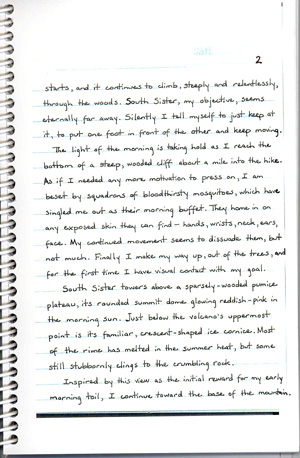 2
starts, and it continues to climb, steeply and relentlessly,
through the woods. South Sister, my objective, seems
eternally far away. Silently I tell myself to just keep at
it, to put one foot in front of the other and keep moving.
The light of the morning is taking hold as I reach the
bottom of a steep, wooded cliff about a mile into the hike.
As if I needed any more motivation to press on, I am
beset by squadrons of bloodthirsty mosquitoes, which have
singled me out as their morning buffet. They home in on
any exposed skin they can find - hands, wrists, neck, ears,
face. My continued movement seems to dissuade them, but
not much. Finally I make my way up, out of the trees, and
for the first time I have visual contact with my goal.
South Sister towers above a sparsely-wooded pumice
plateau, its rounded summit dome glowing reddish-pink in
the morning sun. Just below the volcano's uppermost
point is its familiar, crescent-shaped ice cornice. Most
of the rime has melted in the summer heat, but some
still stubbornly clings to the crumbling rock.
Inspired by this view as the initial reward for my early
morning toil, I continue toward the base of the mountain,